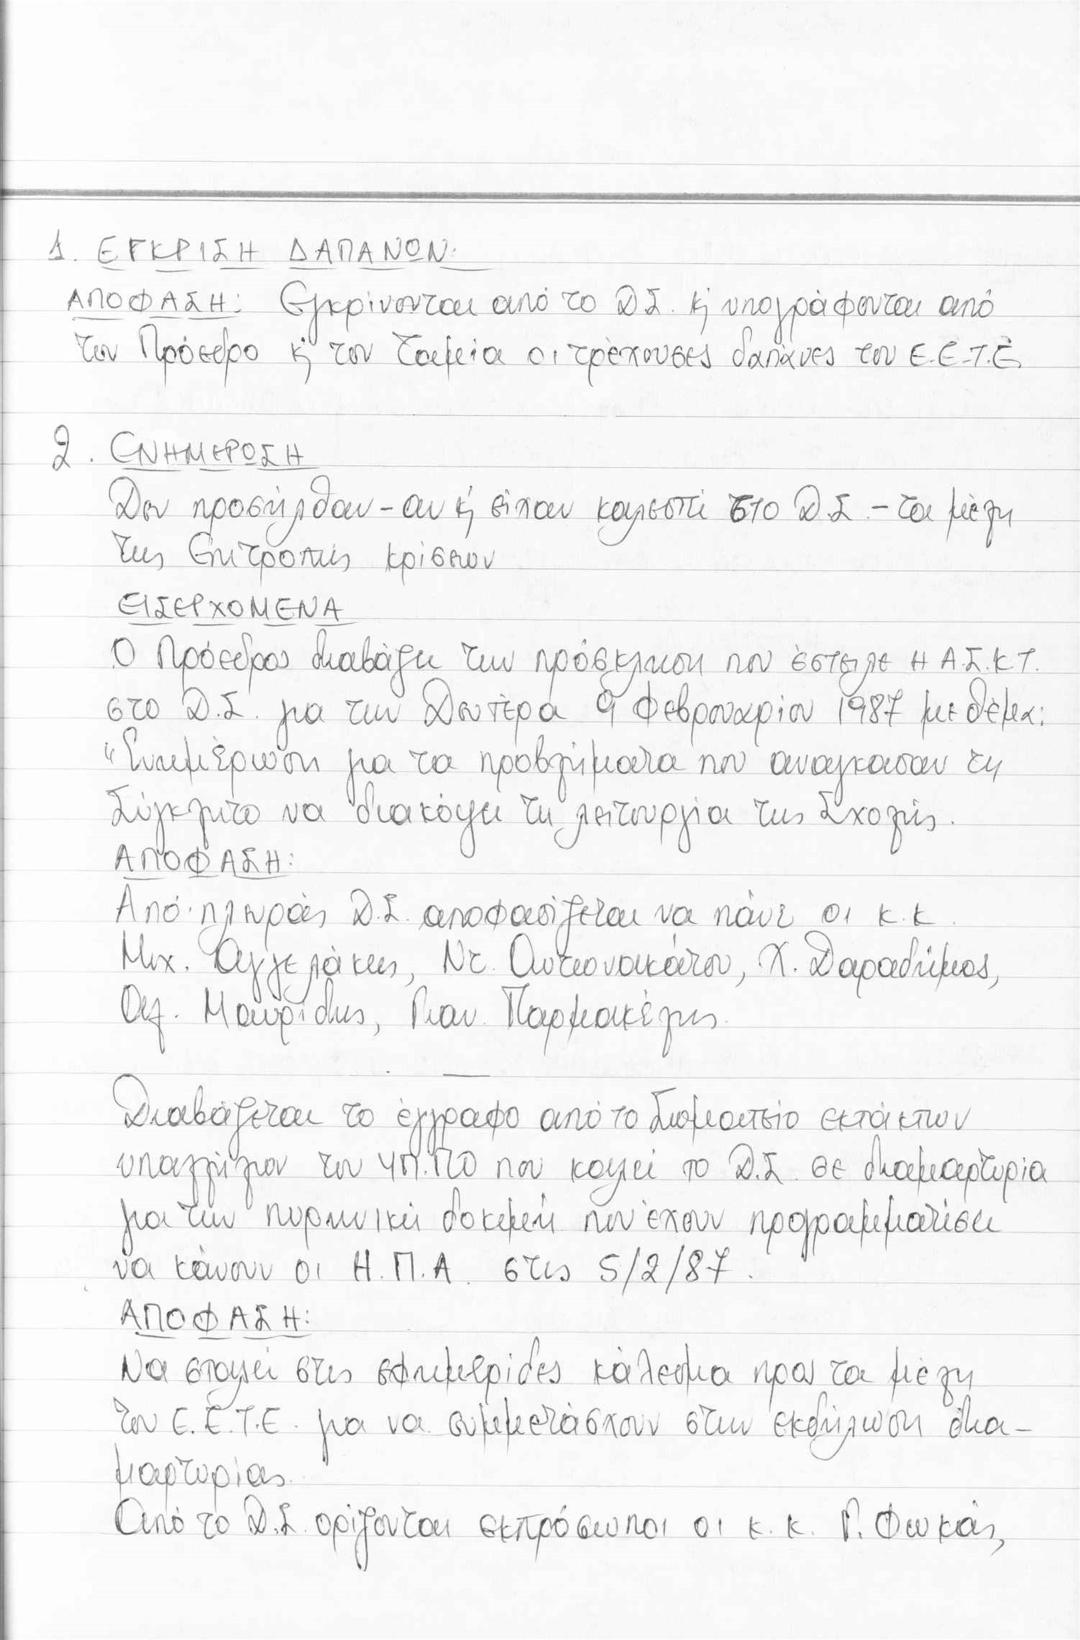 1. ΕΓΚΡΙΣΗ ΔΑΠΑΝΩΝ:
ΑΠΟΦΑΣΗ: Εγκρίνονται από το Δ.Σ. κ' υπογράφονται από
τον Πρόεδρο κ' τον Ταμεία οι τρέχουσες δαπάνες του Ε.Ε.Τ.Ε.
2. ΕΝΗΜΕΡΩΣΗ
Δεν προσήλθαν - αν κ' είχαν καλεστεί στο Δ.Σ. - τα μέλη
της Επιτροπής κρίσεων
ΕΙΣΕΡΧΟΜΕΝΑ
Ο Πρόεδρος διαβάζει την πρόσκληση που έστειλε η Α.Σ.Κ.Τ.
στο Δ.Σ. για την Δευτέρα 9 Φεβρουαρίου 1987 με θέμα:
"Ενημέρωση για τα προβλήματα που ανάγκασαν τη
Σύγκλητο να διακόψει τη λειτουργία της Σχολής.
ΑΠΟΦΑΣΗ:
Από πλευράς Δ.Σ. αποφασίζεται να πάνε οι κ.κ.
Μιχ. Αγγελάκης, Ντ. Αντωνακάτου, Χ. Δαραδήμος,
Αλ. Μαυρίδης, Γιαν. Παρμακέλης.
Διαβάζεται το έγγραφο από το Σωματείο εκτάκτων
υπαλλήλων του ΥΠ.ΠΟ που καλεί το Δ.Σ. σε διαμαρτυρία
για την πυρηνική δοκιμή που έχουν προγραμματίσει
να κάνουν οι Η.Π.Α. στις 5/2/87.
ΑΠΟΦΑΣΗ:
Να σταλεί στις εφημερίδες κάλεσμα προς τα μέλη
του Ε.Ε.Τ.Ε. για να συμμετάσχουν στην εκδήλωση δια-
μαρτυρίας.
Από το Δ.Σ. ορίζονται εκπρόσωποι οι κ.κ. Γ. Φωκάς,